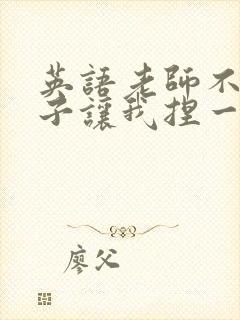 英語老師不
子讓我捏一
廖父